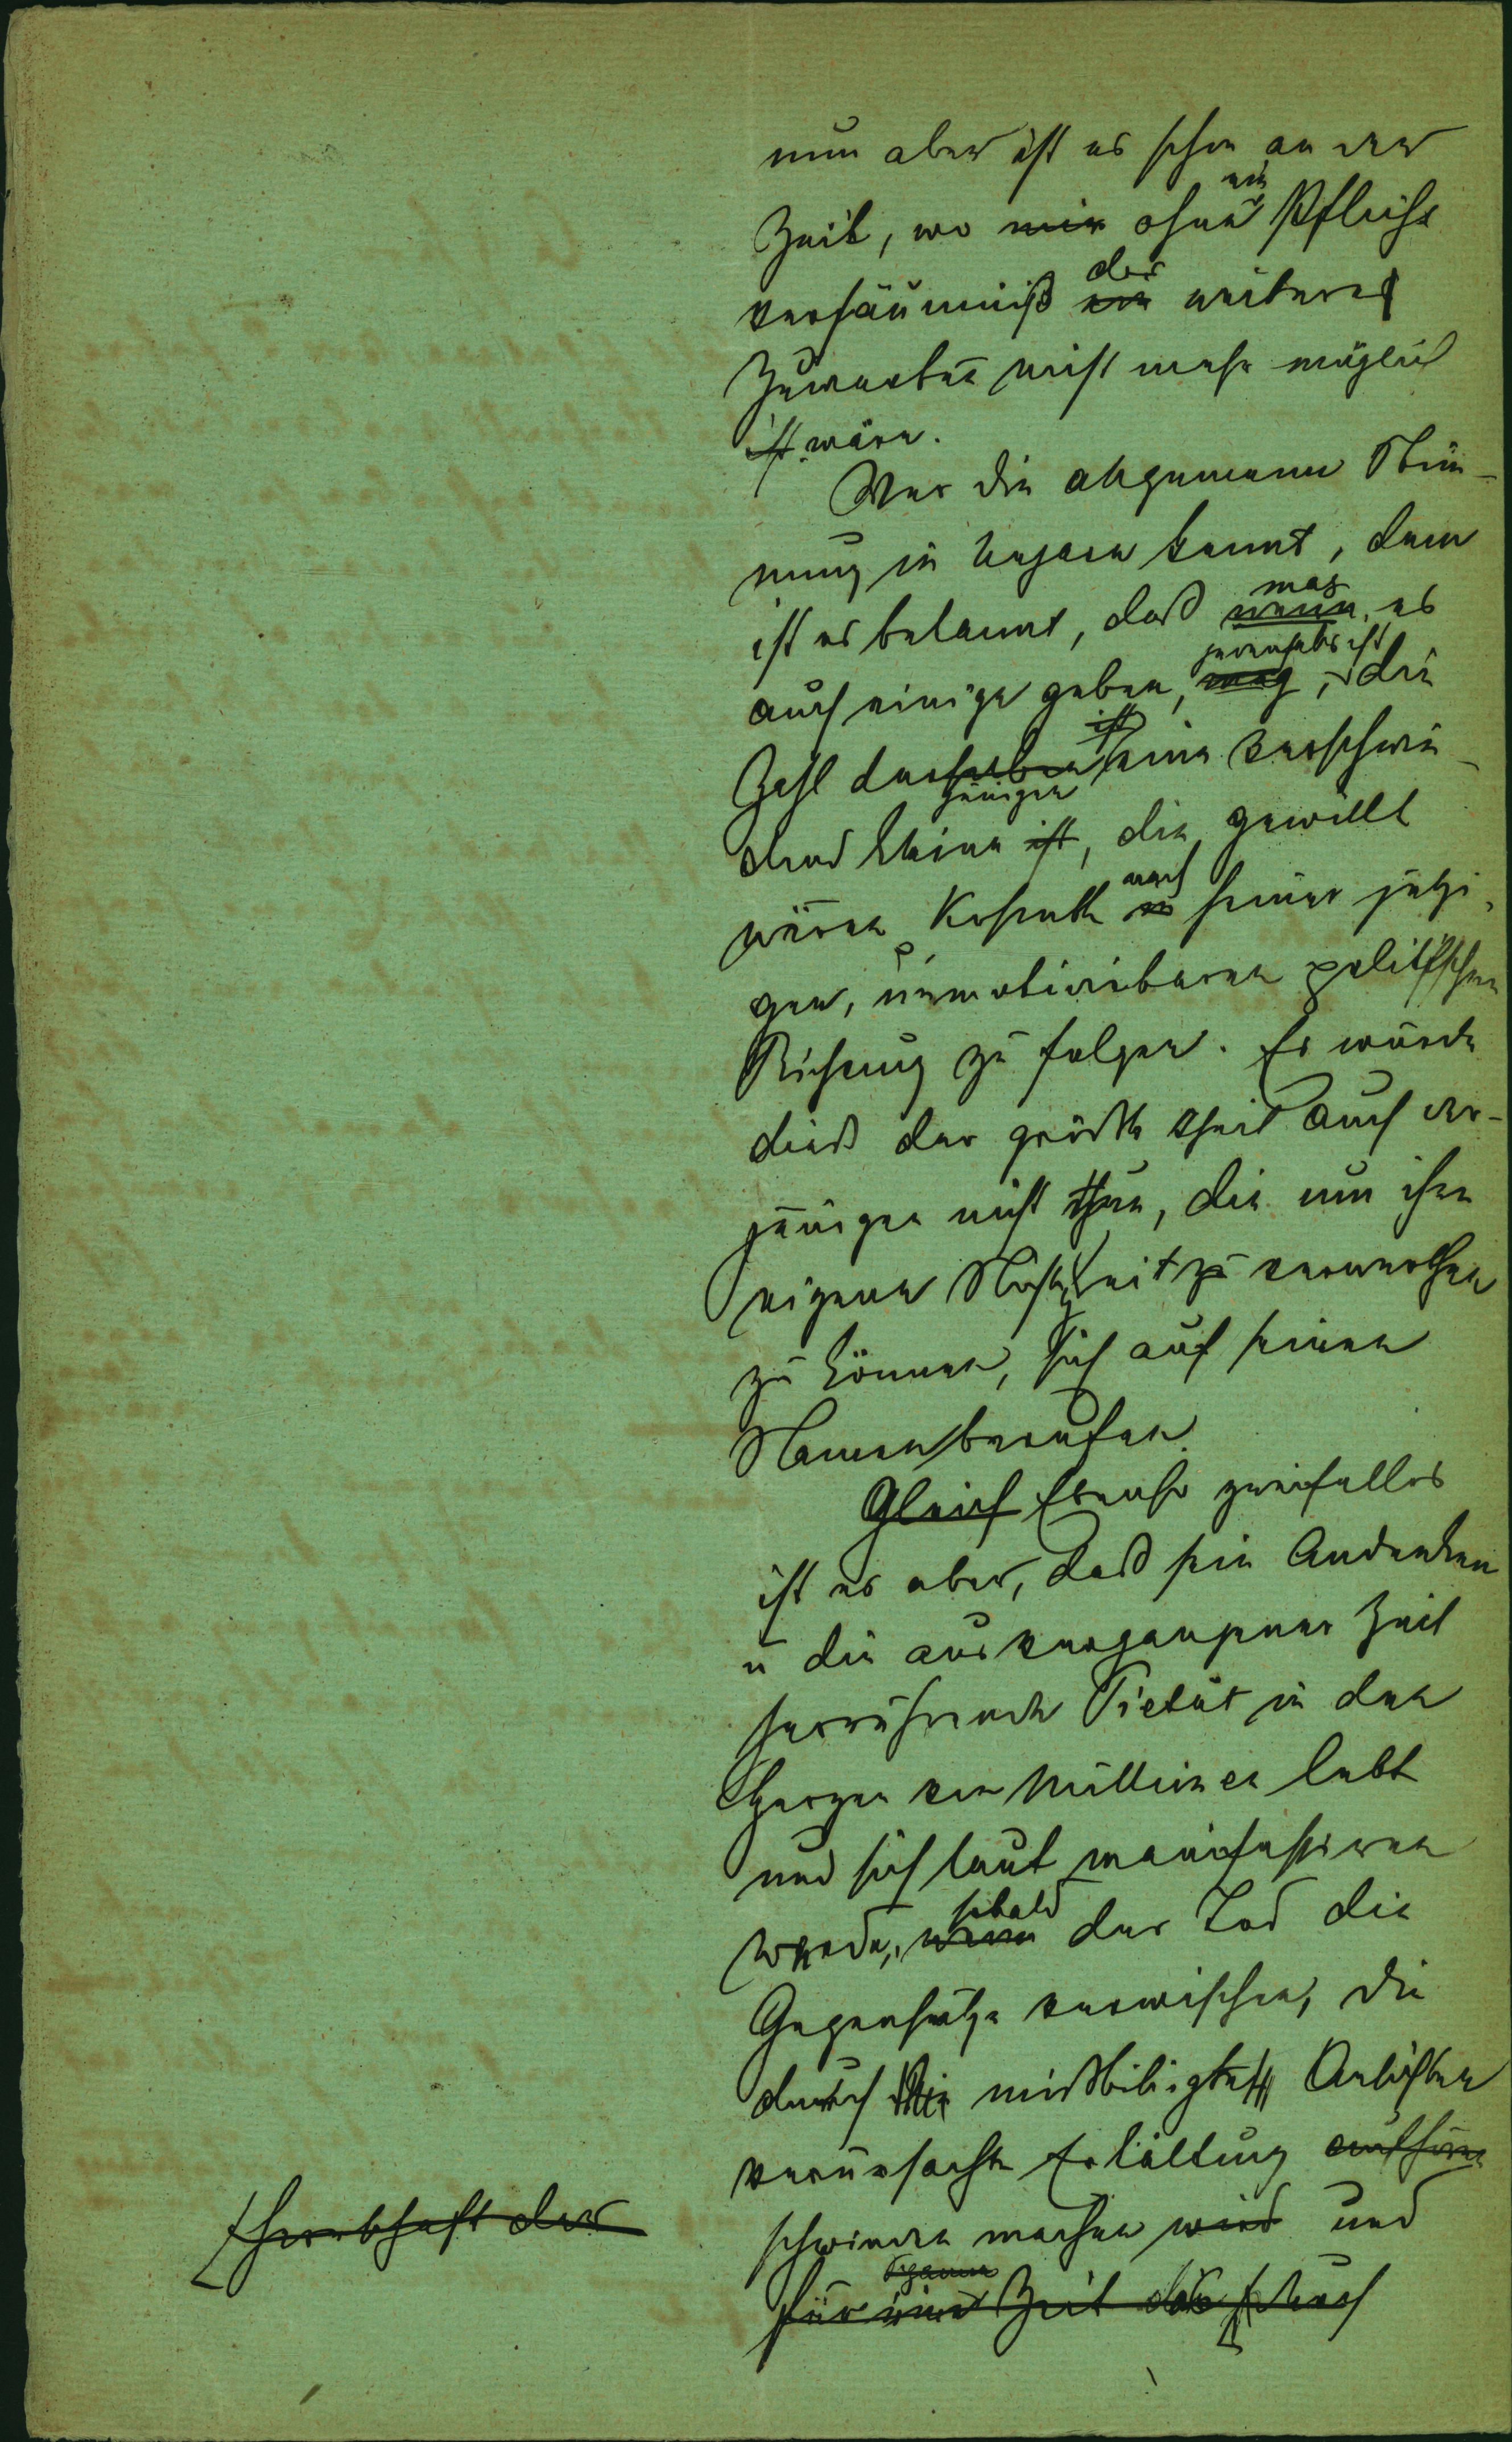 nun aber ist es schon an der
Zeit, wo ~~mir~~ ohne ein Pflicht
versäumniß ~~ein~~ der weiteres
Zuwarten nicht mehr möglich
~~ist~~ wäre.
Wer die allgemeine Stim-
mung in Ungarn kennt, dem
ist es bekannt, daß ~~wenn~~ mag es
auch einige geben, ~~mag~~, jedenfalls ist die
Zahl der~~selben~~jenigen ~~ist~~ eine verschwin-
dend kleine ~~ist~~, die gewillt
wären Kossuth ~~in~~ nach seiner jetzi-
gen, unmotivirbaren politischen
Richtung zu folgen. Es würde
dieß der größte Theil auch der-
jenigen nicht thun, die um ihre
eigene Nichtigkeit ~~zu~~ verwerthen
zu können, sich auf seinen
Namen berufen.
~~Gleich~~ Ebenso zweifellos
ist es aber, daß sein Andenken
u die aus vergangener Zeit
herrührende Pietät in den
Herzen von Millionen lebt
und sich laut manifestiren
werde, ~~wenn~~ sobald der Tod die
Gegensätze verwischen, die
durch die mißbilligten Ansichten
verursachte Erkältung ~~aufhören~~
schwinden machen ~~wird~~ und
~~für eine Zeit das~~
~~Herrschaft der~~